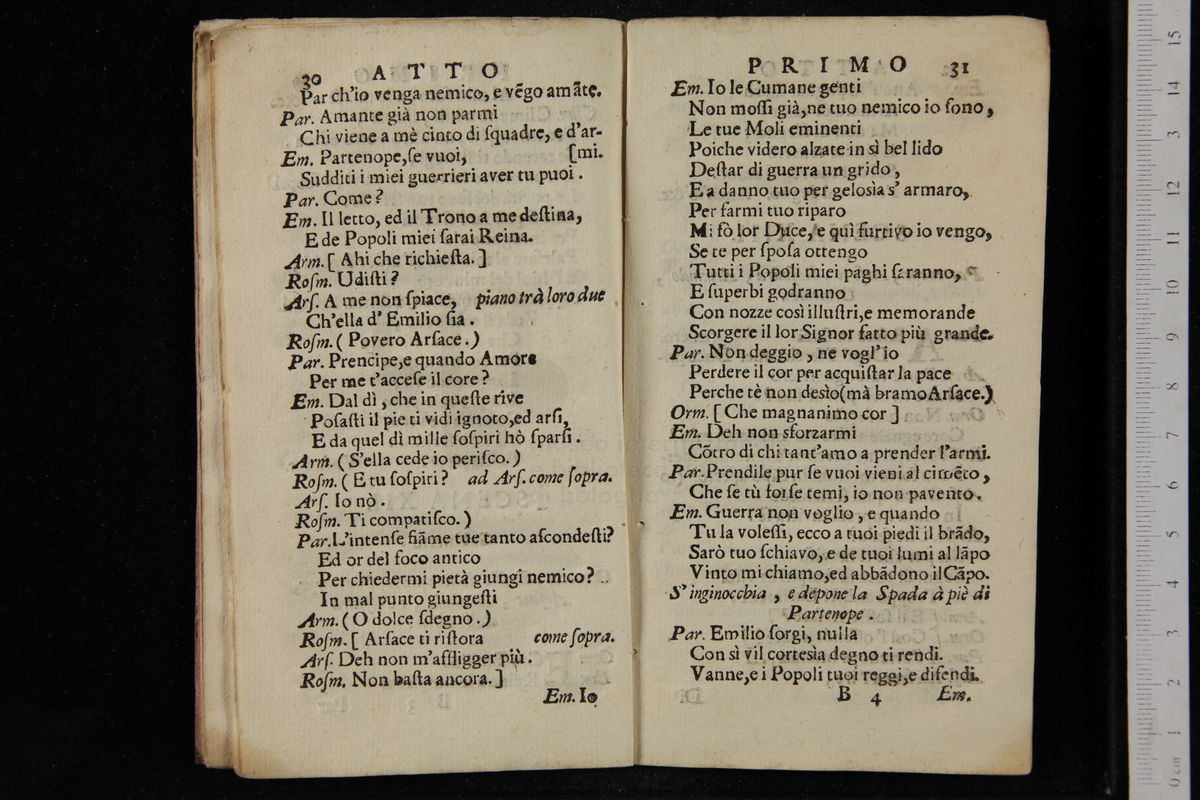 30 ATTO
Par ch'io venga nemico, e vẽgo amãte.
Par. Amante già non parmi
Chi viene a mè cinto di ſquadre, e d'ar-
Em. Partenope,ſe vuoi, [mi.
Sudditi i miei guerrieri aver tu puoi.
Par. Come?
Em. Il letto, ed il Trono a me deſtina,
E de Popoli miei ſarai Reina.
Arm. [ Ahi che richieſta. ]
Roſm. Udiſti?
Arſ. A me non ſpiace, piano trà loro due
Ch'ella d' Emilio ſia.
Roſm. ( Povero Arſace. )
Par. Prencipe,e quando Amore
Per me t'acceſe il core?
Em. Dal dì, che in queſte rive
Poſaſti il pie ti vidi ignoto,ed arſi,
E da quel dì mille ſoſpiri hò ſparſi.
Arm. ( S'ella cede io periſco. )
Roſm. ( E tu ſoſpiri? ad Arſ. come ſopra.
Arſ. Io nò.
Roſm. Ti compatiſco. )
Par. L'intenſe fiãme tue tanto aſcondeſti?
Ed or del foco antico
Per chiedermi pietà giungi nemico?
In mal punto giungeſti
Arm. ( O dolce ſdegno. )
Roſm. [ Arſace ti riſtora come ſopra.
Arſ. Deh non m'affligger più.
Roſm. Non baſta ancora. ]
Em. Io
PRIMO 31
Em. Io le Cumane genti
Non moſſi già,ne tuo nemico io ſono,
Le tue Moli eminenti
Poiche videro alzate in sì bel lido
Deſtar di guerra un grido,
E a danno tuo per geloſìa s' armaro,
Per farmi tuo riparo
Mi fò lor Duce, e quì furtivo io vengo,
Se te per ſpoſa ottengo
Tutti i Popoli miei paghi ſaranno,
E ſuperbi godranno
Con nozze così illuſtri,e memorande
Scorgere il lor Signor fatto più grande.
Par. Non deggio, ne vogl' io
Perdere il cor per acquiſtar la pace
Perche tè non desìo(mà bramo Arſace.)
Orm. [ Che magnanimo cor ]
Em. Deh non sforzarmi
Cõtro di chi tant'amo a prender l'armi.
Par. Prendile pur ſe vuoi vieni al cimẽto,
Che ſe tù forſe temi, io non pavento.
Em. Guerra non voglio, e quando
Tu la voleſſi, ecco a tuoi piedi il brãdo,
Sarò tuo ſchiavo, e de tuoi lumi al lãpo
Vinto mi chiamo,ed abbãdono il Cãpo.
S' inginocchia, e depone la Spada à piè di
Partenope.
Par. Emilio ſorgi, nulla
Con sì vil corteſìa degno ti rendi.
Vanne,e i Popoli tuoi reggi,e difendi.
B 4 Em.